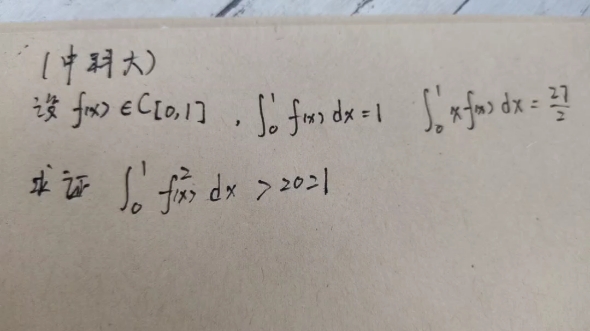 (中科大)
设 f(x) ∈ C[0,1] , ∫₀¹ f(x) dx = 1 ∫₀¹ x f(x) dx = 27/2
求证 ∫₀¹ f²(x) dx > 2021